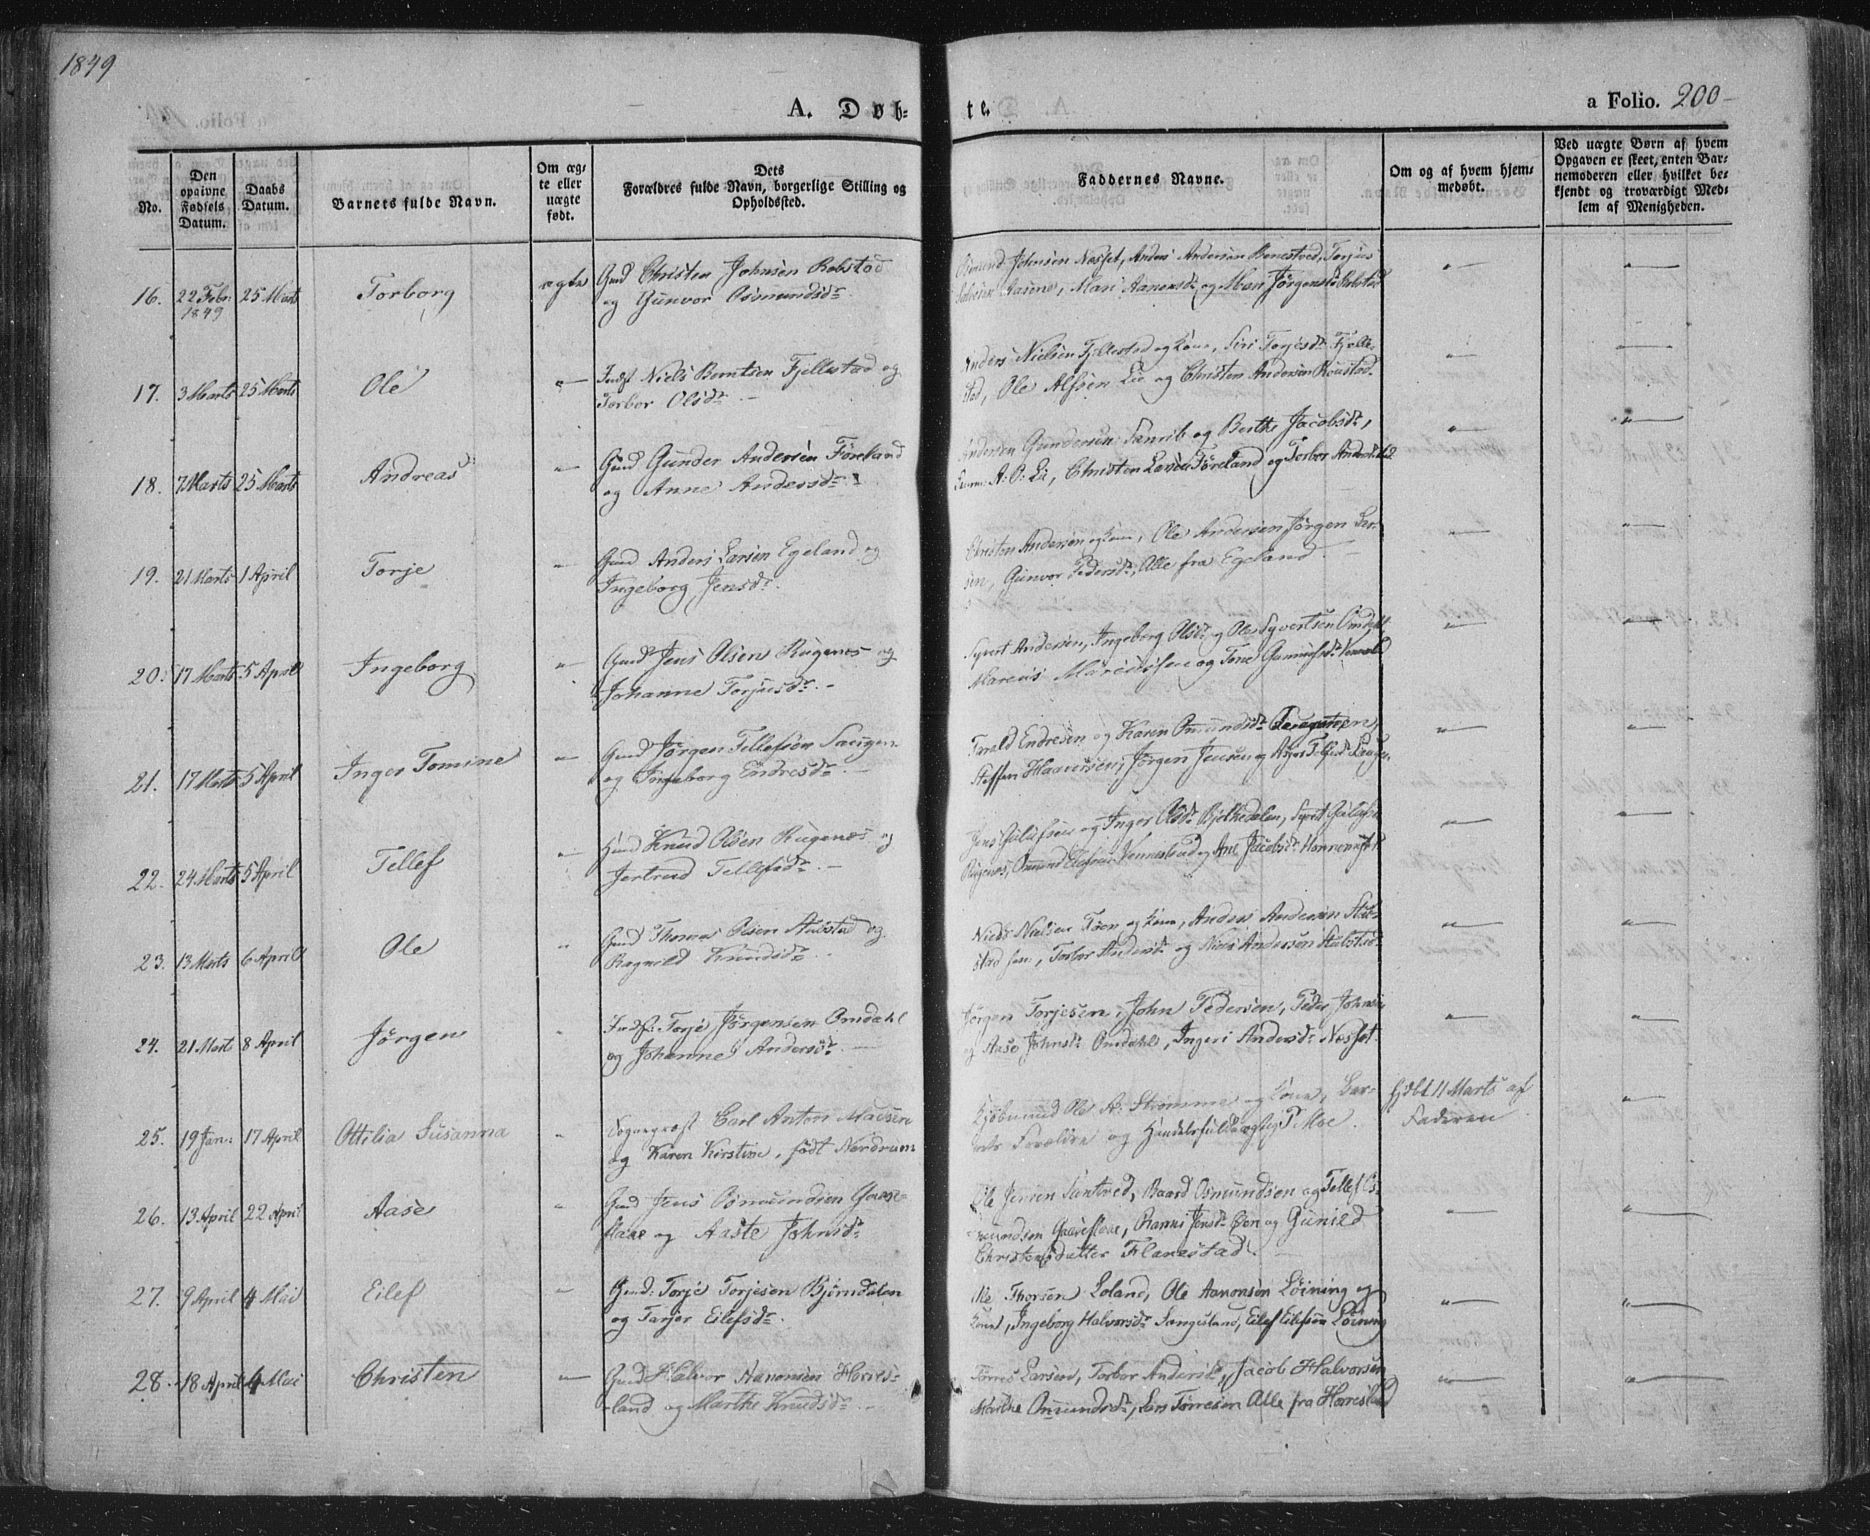 1849
A. Døb-
te.
a Folio. 200
No.
Den opgivne Fødsels Datum.
Daabs Datum.
Barnets fulde Navn.
Om ægte eller uægte født.
Dets Forældres fulde Navn, borgerlige Stilling og Opholdssted.
Faddernes Navne.
Om og af hvem hjemmedøbt.
Ved uægte Børn af hvem Opgaven er skeet, enten Barnemoderen eller hvilket bekjendt og troværdigt Medlem af Menigheden.
16. 22 Febr. 1849 25 Marts Torborg ægte Gmd Christen Johnsen Robstad
og Gunvor Osmundsdr.
Osmund Johnsen Nasset, Anders Andersen Torjus
Salvesen Aasene, Mari Aanensdr og Mari Jörgensdr Robstad
17. 3 Marts 25 Marts Ole " Indst Niels Berntsen Fjellestad og
Torbor Olsdr.
Anders Nielsen Fjellestad og Kone, Siri Torjesdr Fjelle-
stad, Ole Alfsen Lie og Christen Andersen
18. 7 Marts 25 Marts Andreas " Gmd Gunder Andersen Föreland
og Anne Andersdr.
Andersen Gundersen og Berthe Jacobsdr,
A. P. Lie, Christen Larsen Föreland og Torbor Andersdr
19. 21 Marts 1 April Torje " Gmd Anders Larsen Egeland og
Ingeborg Jensdr.
Christen Andersen og Kone, Ole Andersen, Jörgen Lar-
sen, Gunvor Pedersdr, Alle fra Egeland.
20. 17 Marts 5 April Ingeborg " Gmd Jens Olsen Rugenes og
Johanne Torjusdr.
Syvert Andersen, Ingeborg Olsdr og Ole Syvertsen Omdahl,
Marcus og Tone
21. 17 Marts 5 April Inger Tomine " Gmd Jörgen Tellefsen
og Ingeborg Endresdr.
Endresen og Karen Omundsdr
Steffen Haaversen, Jörgen Jensen og
22. 24 Marts 5 April Tellef " Gmd Knud Olsen Rugenæs og
Jertrud Tellefsdr.
Jens og Inger Olsdr Bjelkedalen, Syvert
Rugenæs, Omund og Ane Jacobsdr
23. 13 Marts 6 April Ole " Gmd Thomas Olsen Stubstad og
Ragnild Knudsdr.
Niels Nielsen og Kone, Anders Andersen Stub-
stad sen, Torbor Andersdr og Niels Andersen Stubstad.
24. 21 Marts 8 April Jörgen " Indst: Torje Jörgensen Omdahl
og Johanne Andersdr.
Jörgen Torjesen, John Pedersen, Peder Johnsen
og Aase Johnsdr Omdahl, Ingeri Andersdr Nasset.
25. 19 Jan: 17 April Ottilia Susanna " Sogneprest Carl Anton
og Karen Kirstine, födt Nordrum
Kjöbmand Ole A. Stromme og Kone, Bar-
nets Forældre og Handelsfuldmægtig P. Moe.
Hjdbt 11 Marts af
Faderen
26. 13 April 22 April Aase " Gmd Jens Osmundsen Gaase-
flaae og Aaste Johnsdr.
Ole Jensen Baard Osmundsen og Tellef Os-
mundsen Gaaseflaae, Jensdr Öen og Gunild
Christensdatter Flanestad.
27. 9 April 4 Mai Eilef " Gmd: Torje Torjesen Björndalen
og Tarjer Eilefsdr.
Ole Thorsen Loland, Ole Aanonsen Löining og
Kone, Ingeborg Halvorsdr Eilef Eilefsen Löining
28. 18 April 4 Mai Christen " Gmd Halvor Aanonsen Horris-
land og Marthe Knudsdr.
Törres Larsen, Torbor Andersdr, Jacob Halvorsen
Marthe Omundsdr, Lars Törresen Alle fra Horrisland